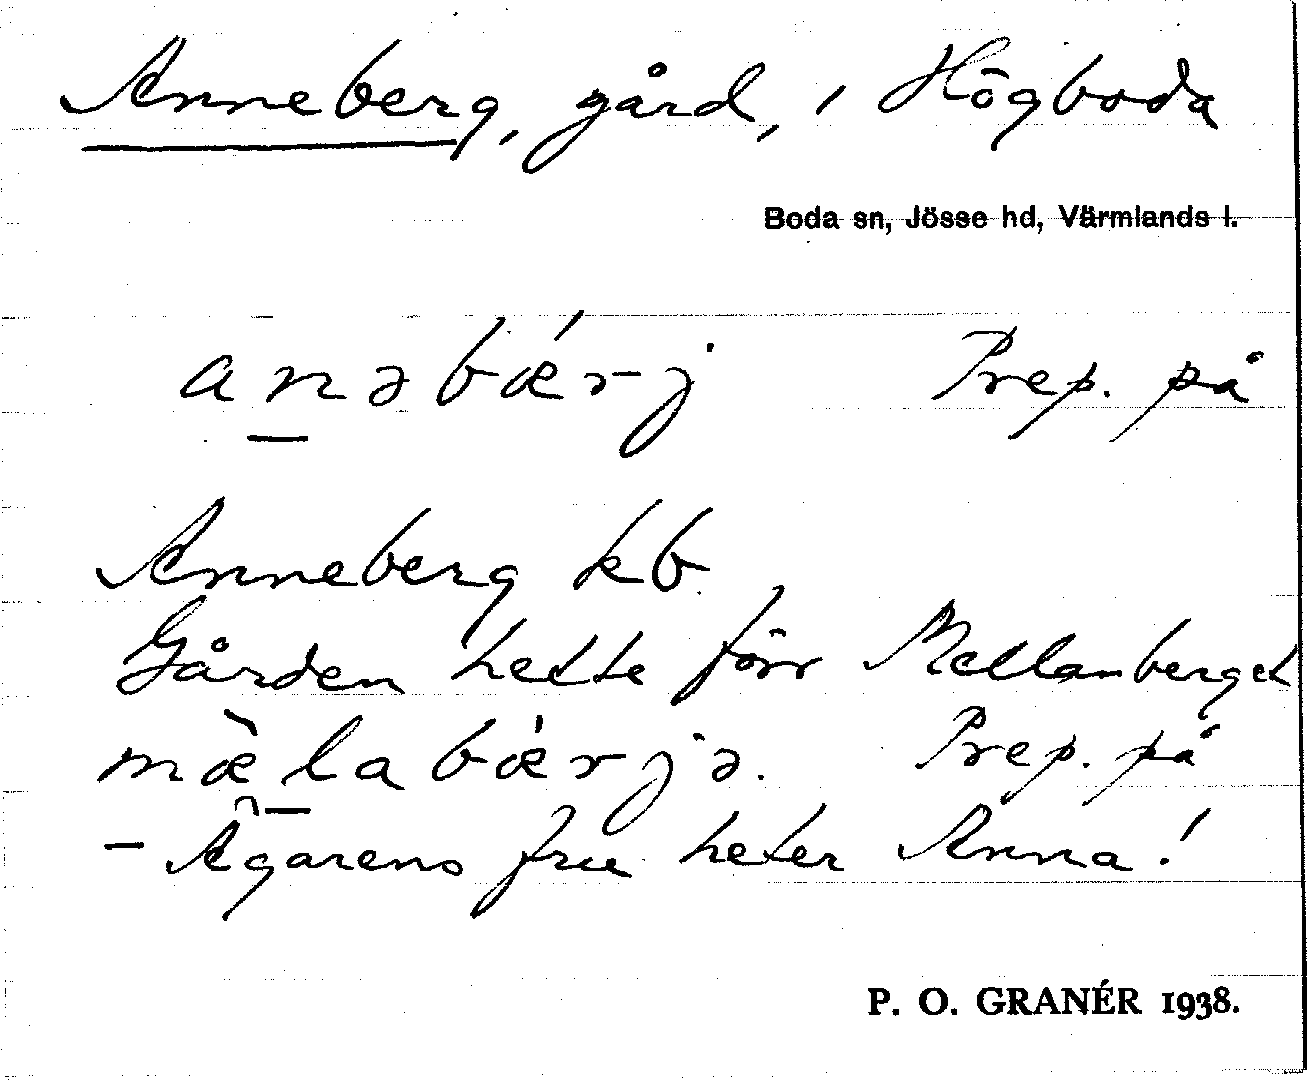 Anneberg, gård, i Högboda
Boda sn, Jösse hd, Värmlands l.
an̲əbǽrj Prep. på
Anneberg kb
Gården hette förr Mellanberget
mæ̀l̲abǽrjə. Prep. på
- Ägarens fru heter Anna!
P. O. GRANÉR 1938.